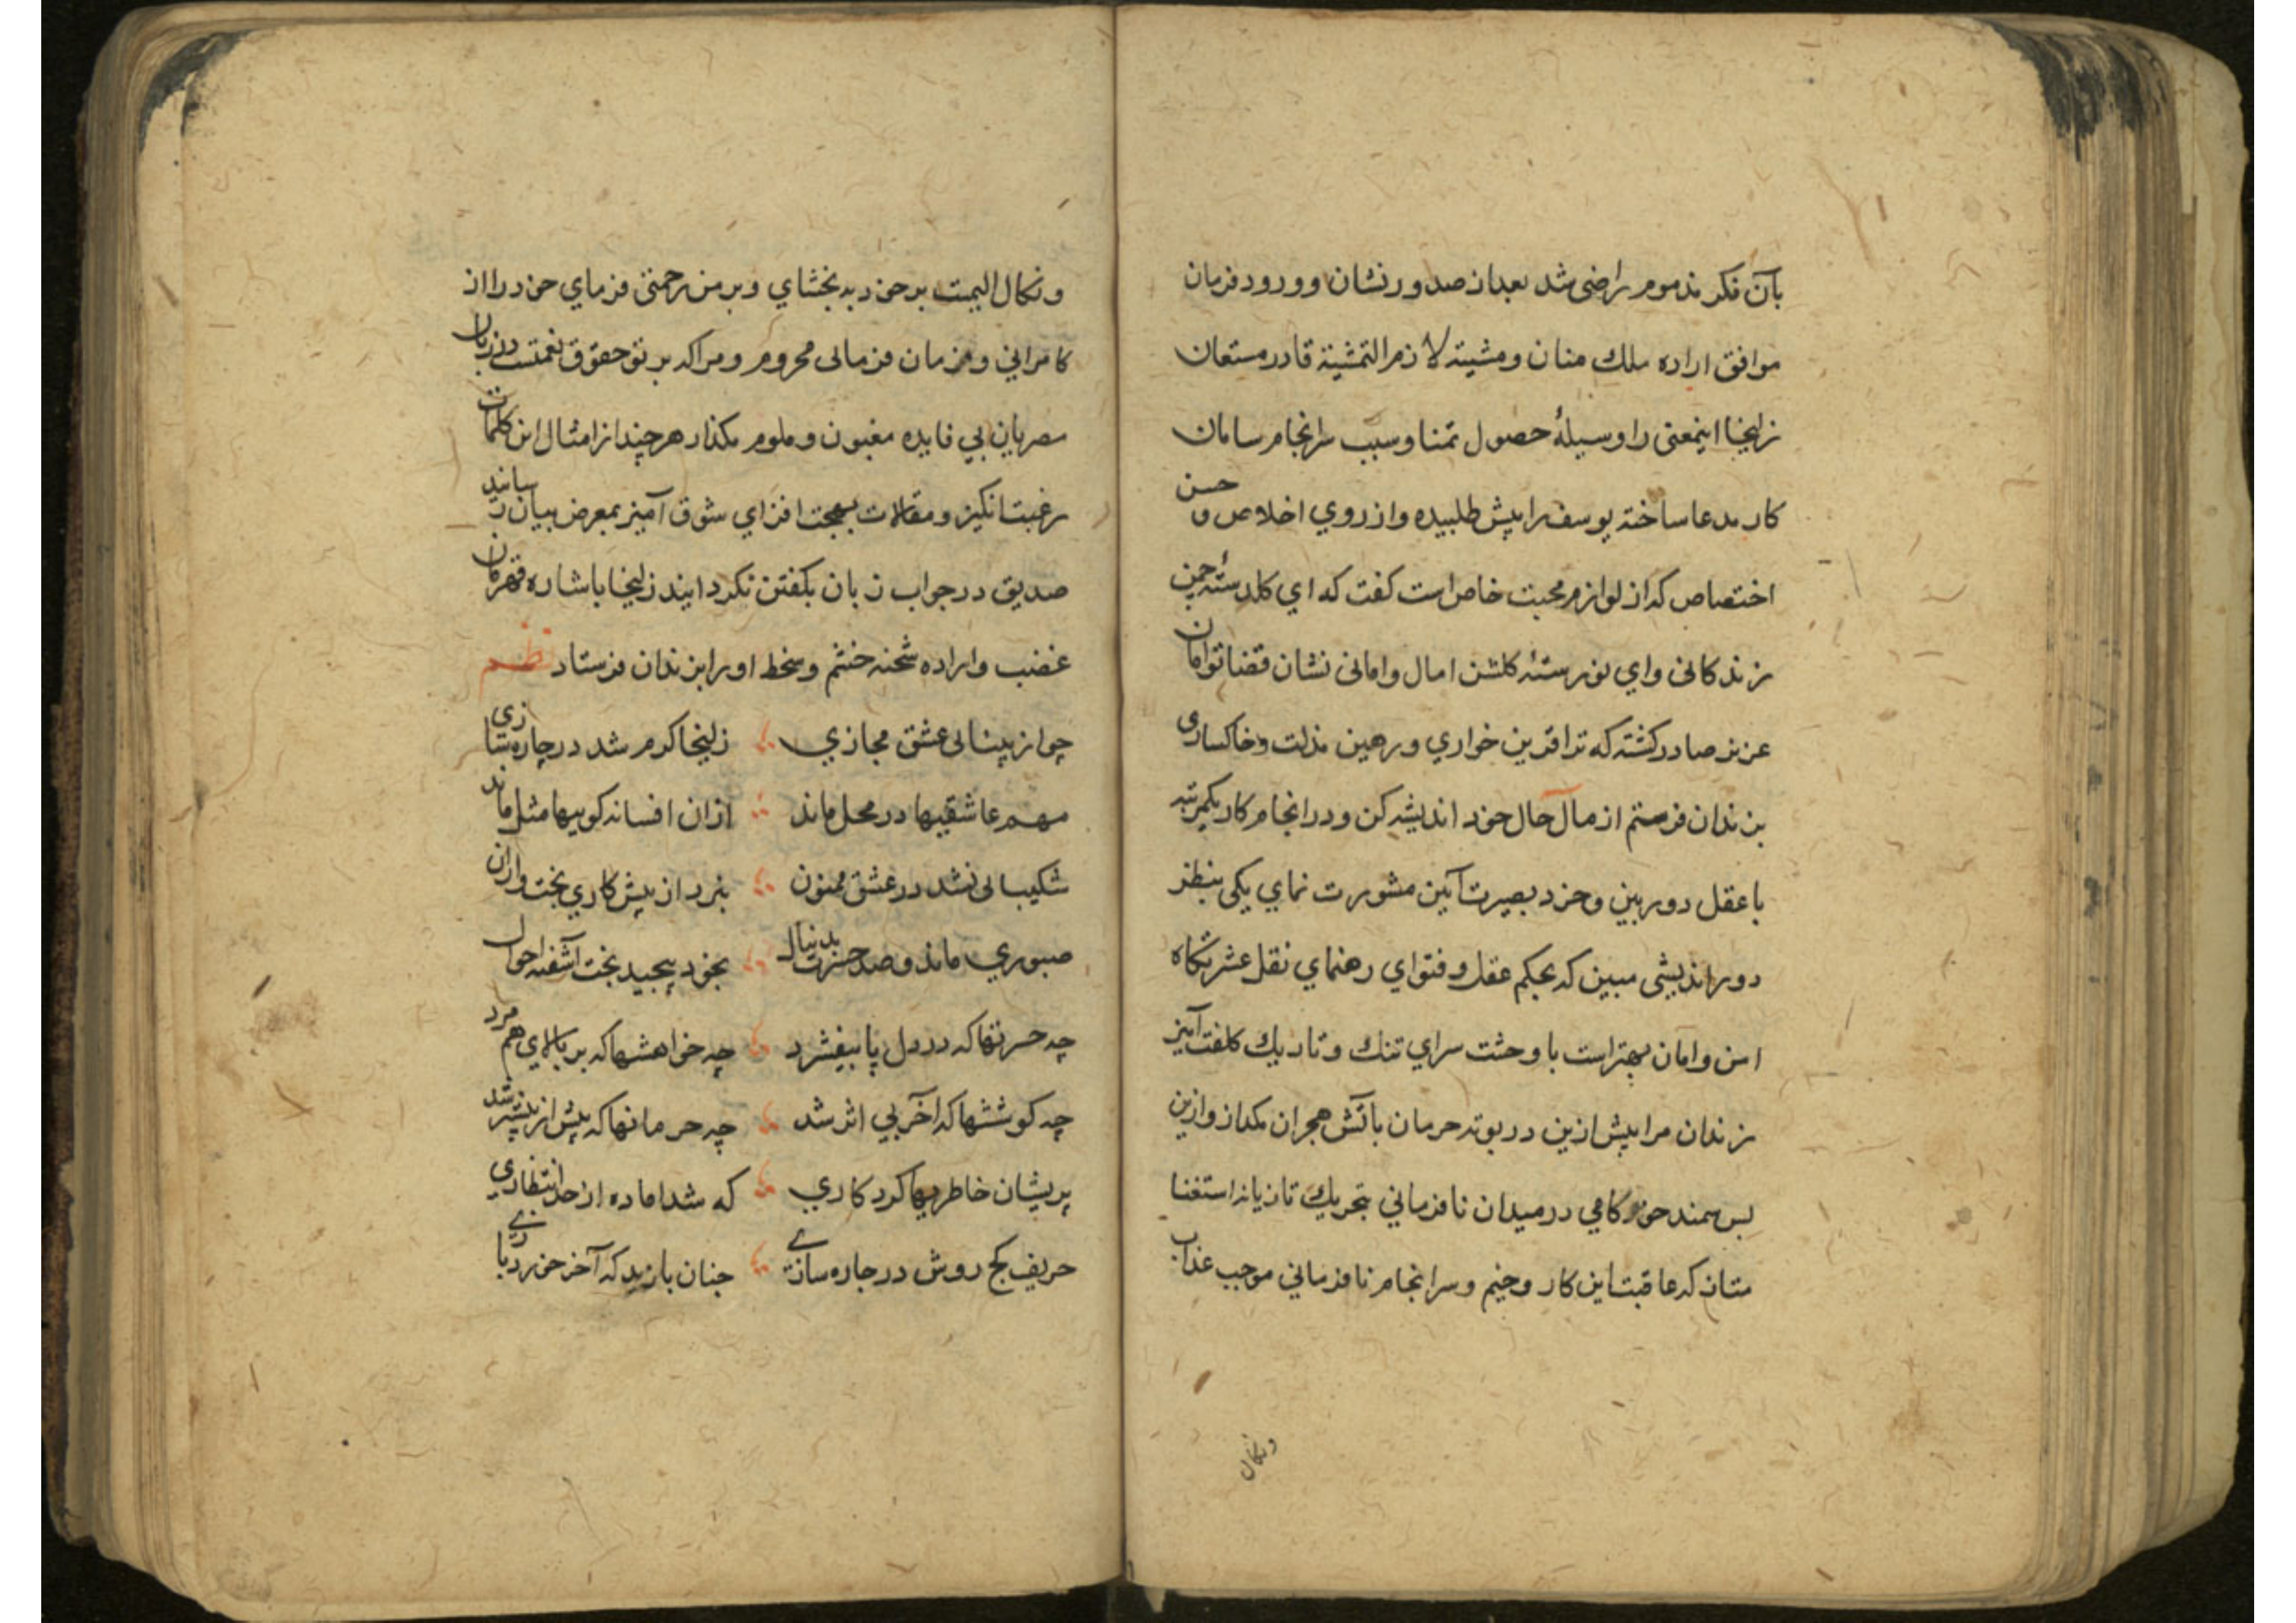 بآن فكر مذموم راضى شد بعد از صدور نشان وورود فرمان
موافق اراده ملك منان ومشيته لازم التمشية قادر مستعان
زليخا اينمعنى را وسيلهٔ حصول تمنا وسبب سرانجام سامان
كار مدعا ساخته يوسف را پيش طلبيده واز روي اخلاص و حسن
اختصاص كه از لوازم محبت خاص است كفت كه اي كلدستهٔ چمن
زندكانى واي نورستهٔ كلشن امال وامانى نشان قضا توامان
عزيز صادر كشته كه ترا قرين خواري ورهين مذلت وخاكسارى
بزندان فرستم از مآل حال خود انديشه كن ودر انجام كار يكمرتبه
با عقل دوربين وخرد بصيرت آيين مشورت نماي يكى بنظر
دور انديشى مبين كه بحكم عقل وفتواي رهنماي نقل عشرتكاه
امن وامان بهتر است يا وحشت سراي تنك وتاريك كلفت آميز
زندان مرا پيش ازين در بوته حرمان بآتش هجران مكداز وازين
پس سمند خود كامي در ميدان نافرماني بتحريك تازيانه استغنا
متاز كه عاقبت اين كار وخيم وسرانجام نافرماني موجب عذاب
ونكال
ونكال اليمست بر خود ببخشاي وبر من رحمتى فرماي خود را از
كامراني وفرمان فرمائى محروم ومرا كه بر تو حقوق نعمتست در زبان
مصريان بي فايده مغبون وملوم مكذار هر چند از امثال اين كلمات
رغبت انكيز ومقالات بهجت افزاي شوق آميز بمعرض بيان رسانيد
صديق در جواب زبان بكفتن نكردانيد زليخا باشاره قهرمان
غضب واراده شحنه خشم وسخط او را بزندان فرستاد نظم
چو از بيتابى عشق مجازي ؞ زليخا كرم شد در چاره سازي
مهم عاشقيها در محل ماند ؞ ازان افسانه كوييها مثل ماند
شكيبائى نشد در عشق ممنون ؞ نبرد از پيش كاري بخت وارون
صبوري ماند وصد حسرت بدنبال ؞ بخود پيچيد بخت آشفته احوال
چه حسرتها كه در دل پا بيفشرد ؞ چه خواهشها كه بر بالاي هم مرد
چه كوششها كه آخر بي اثر شد ؞ چه حرمانها كه پيش از پيشتر شد
پريشان خاطريها كرد كاري ؞ كه شد اماده از حد انتظاري
حريف كج روش در چاره سازے ؞ چنان بازيد كه آخر خورد بازے